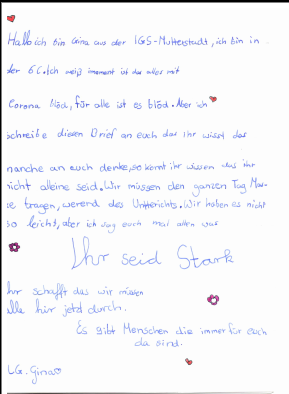 Hallo ich bin Gina aus der IGS-Mutterstadt, ich bin in
der 6C. Ich weiß imoment ist das alles mit
Corona Blöd, für alle ist es blöd. Aber ich
schreibe diesen Brief an euch das ihr wisst das
manche an euch denke, so könnt ihr wissen das ihr
nicht alleine seid. Wir müssen den ganzen Tag Mas-
ke tragen, werend des Unterichts. Wir haben es nicht
so leicht, aber ich sag euch mal allen was
Ihr seid Stark
Ihr schafft das wir müssen
alle hir jetzt durch.
Es gibt Menschen die immer für euch
da sind.
LG. Gina